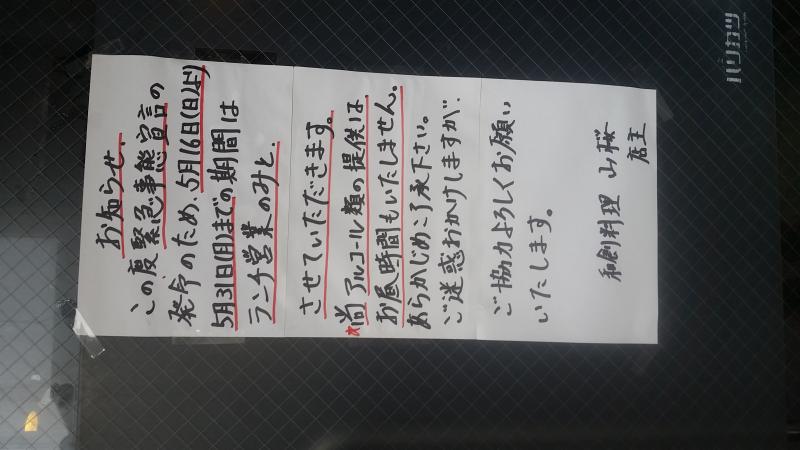 お知らせ.
この度緊急事態宣言の
発令のため、5月16日(日)より
5月31日(月)までの期間は
ランチ営業のみと、
させていただきます。
※尚アルコール類の提供は、
お昼時間もいたしません。
あらかじめご了承下さい。
ご迷惑おかけしますが、
ご協力よろしくお願い
いたします。
和創料理 山桜
店主